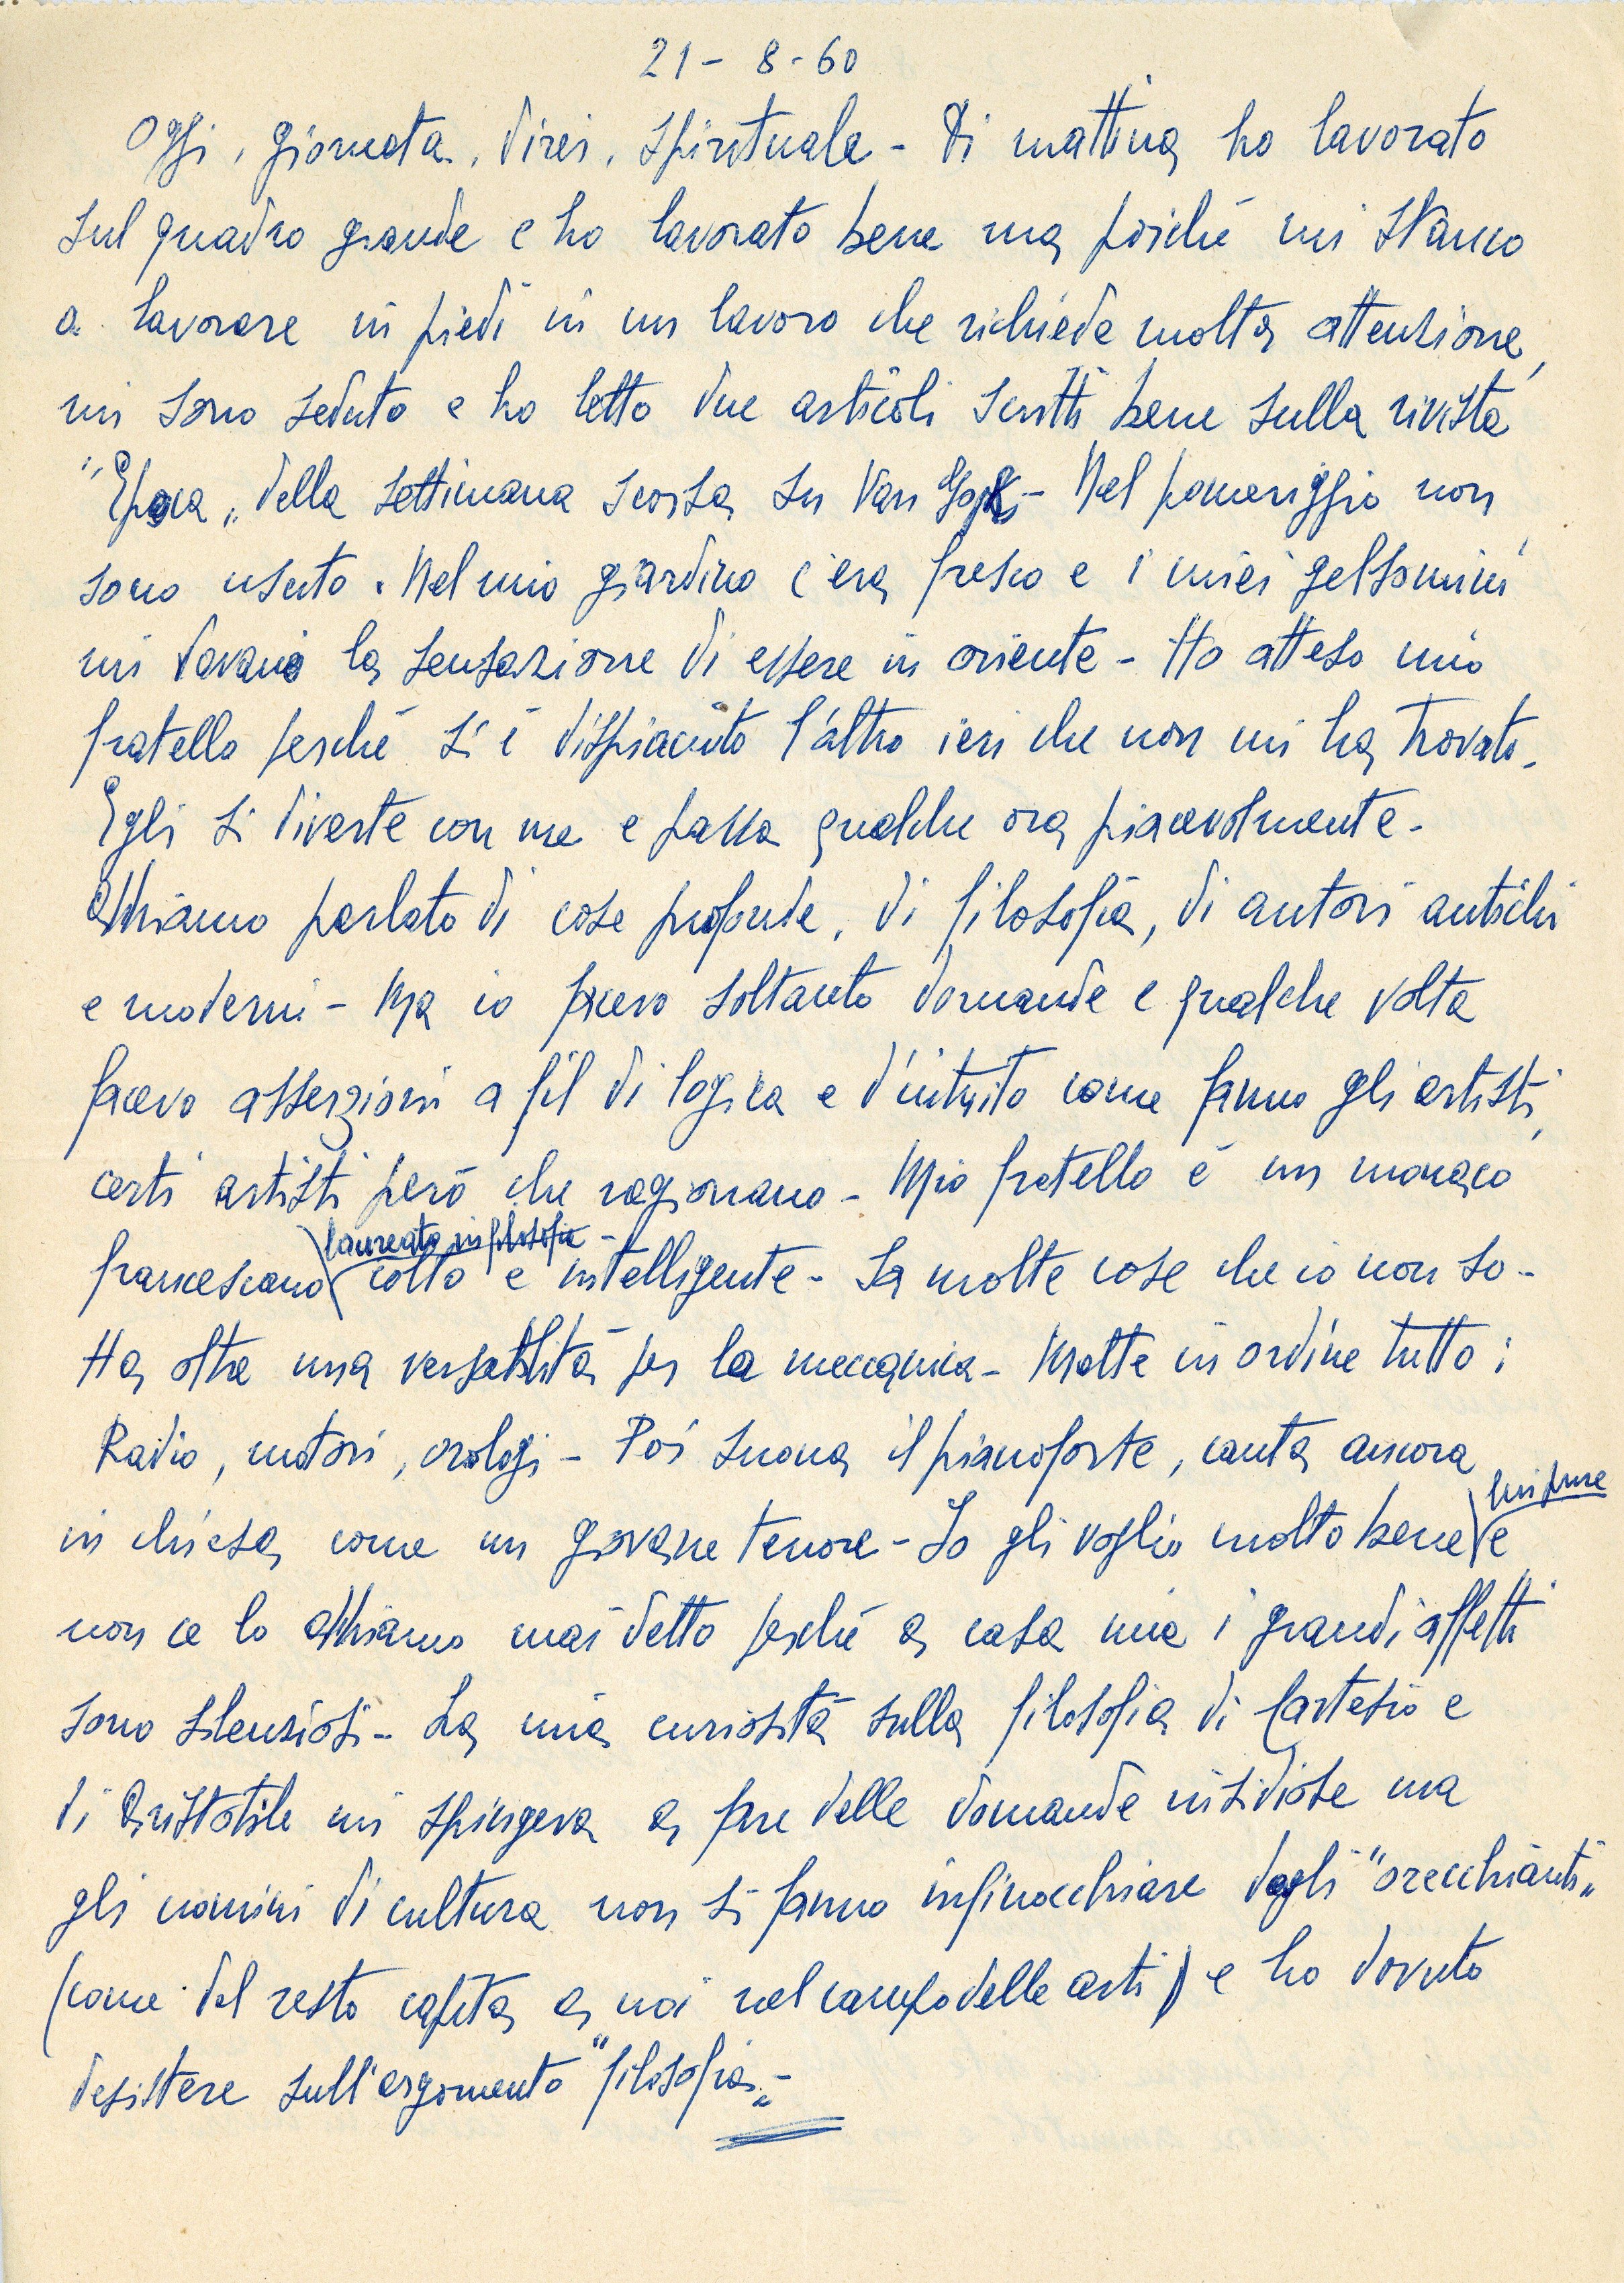 21 - 8 - 60
Oggi, giornata, direi, spirituale - Di mattina ho lavorato
sul quadro grande e ho lavorato bene ma poiché mi stanco
a lavorare in piedi in un lavoro che richiede molta attenzione,
mi sono seduto e ho letto due articoli scritti bene sulla rivista
"Epoca„ della settimana scorsa su Van Gogh - Nel pomeriggio non
sono uscito. Nel mio giardino c'era fresco e i miei gelsomini
mi davano la sensazione di essere in oriente - Ho atteso mio
fratello perché si è dispiaciuto l'altro ieri che non mi ha trovato.
Egli si diverte con me e passa qualche ora piacevolmente -
Abbiamo parlato di cose profonde, di filosofia, di autori antichi
e moderni - Ma io facevo soltanto domande e qualche volta
facevo asserzioni a fil di logica e d'intuito come fanno gli artisti,
certi artisti però che ragionano - Mio fratello è un monaco
laureato in filosofia -
francescano colto e intelligente - Sa molte cose che io non so -
Ha oltre una versatilità per la meccanica - Mette in ordine tutto:
Radio, motori, orologi - Poi suona il pianoforte, canta ancora
lui pure
in chiesa come un giovane tenore - Io gli voglio molto bene e
non ce lo abbiamo mai detto perché a casa mia i grandi affetti
sono silenziosi - La mia curiosità sulla filosofia di Cartesio e
di Aristotile mi spingeva a fare delle domande insidiose ma
gli uomini di cultura non si fanno infinocchiare dagli "orecchianti„
(come del resto capita a noi nel campo delle arti) e ho dovuto
desistere sull'argomento "filosofia„ -